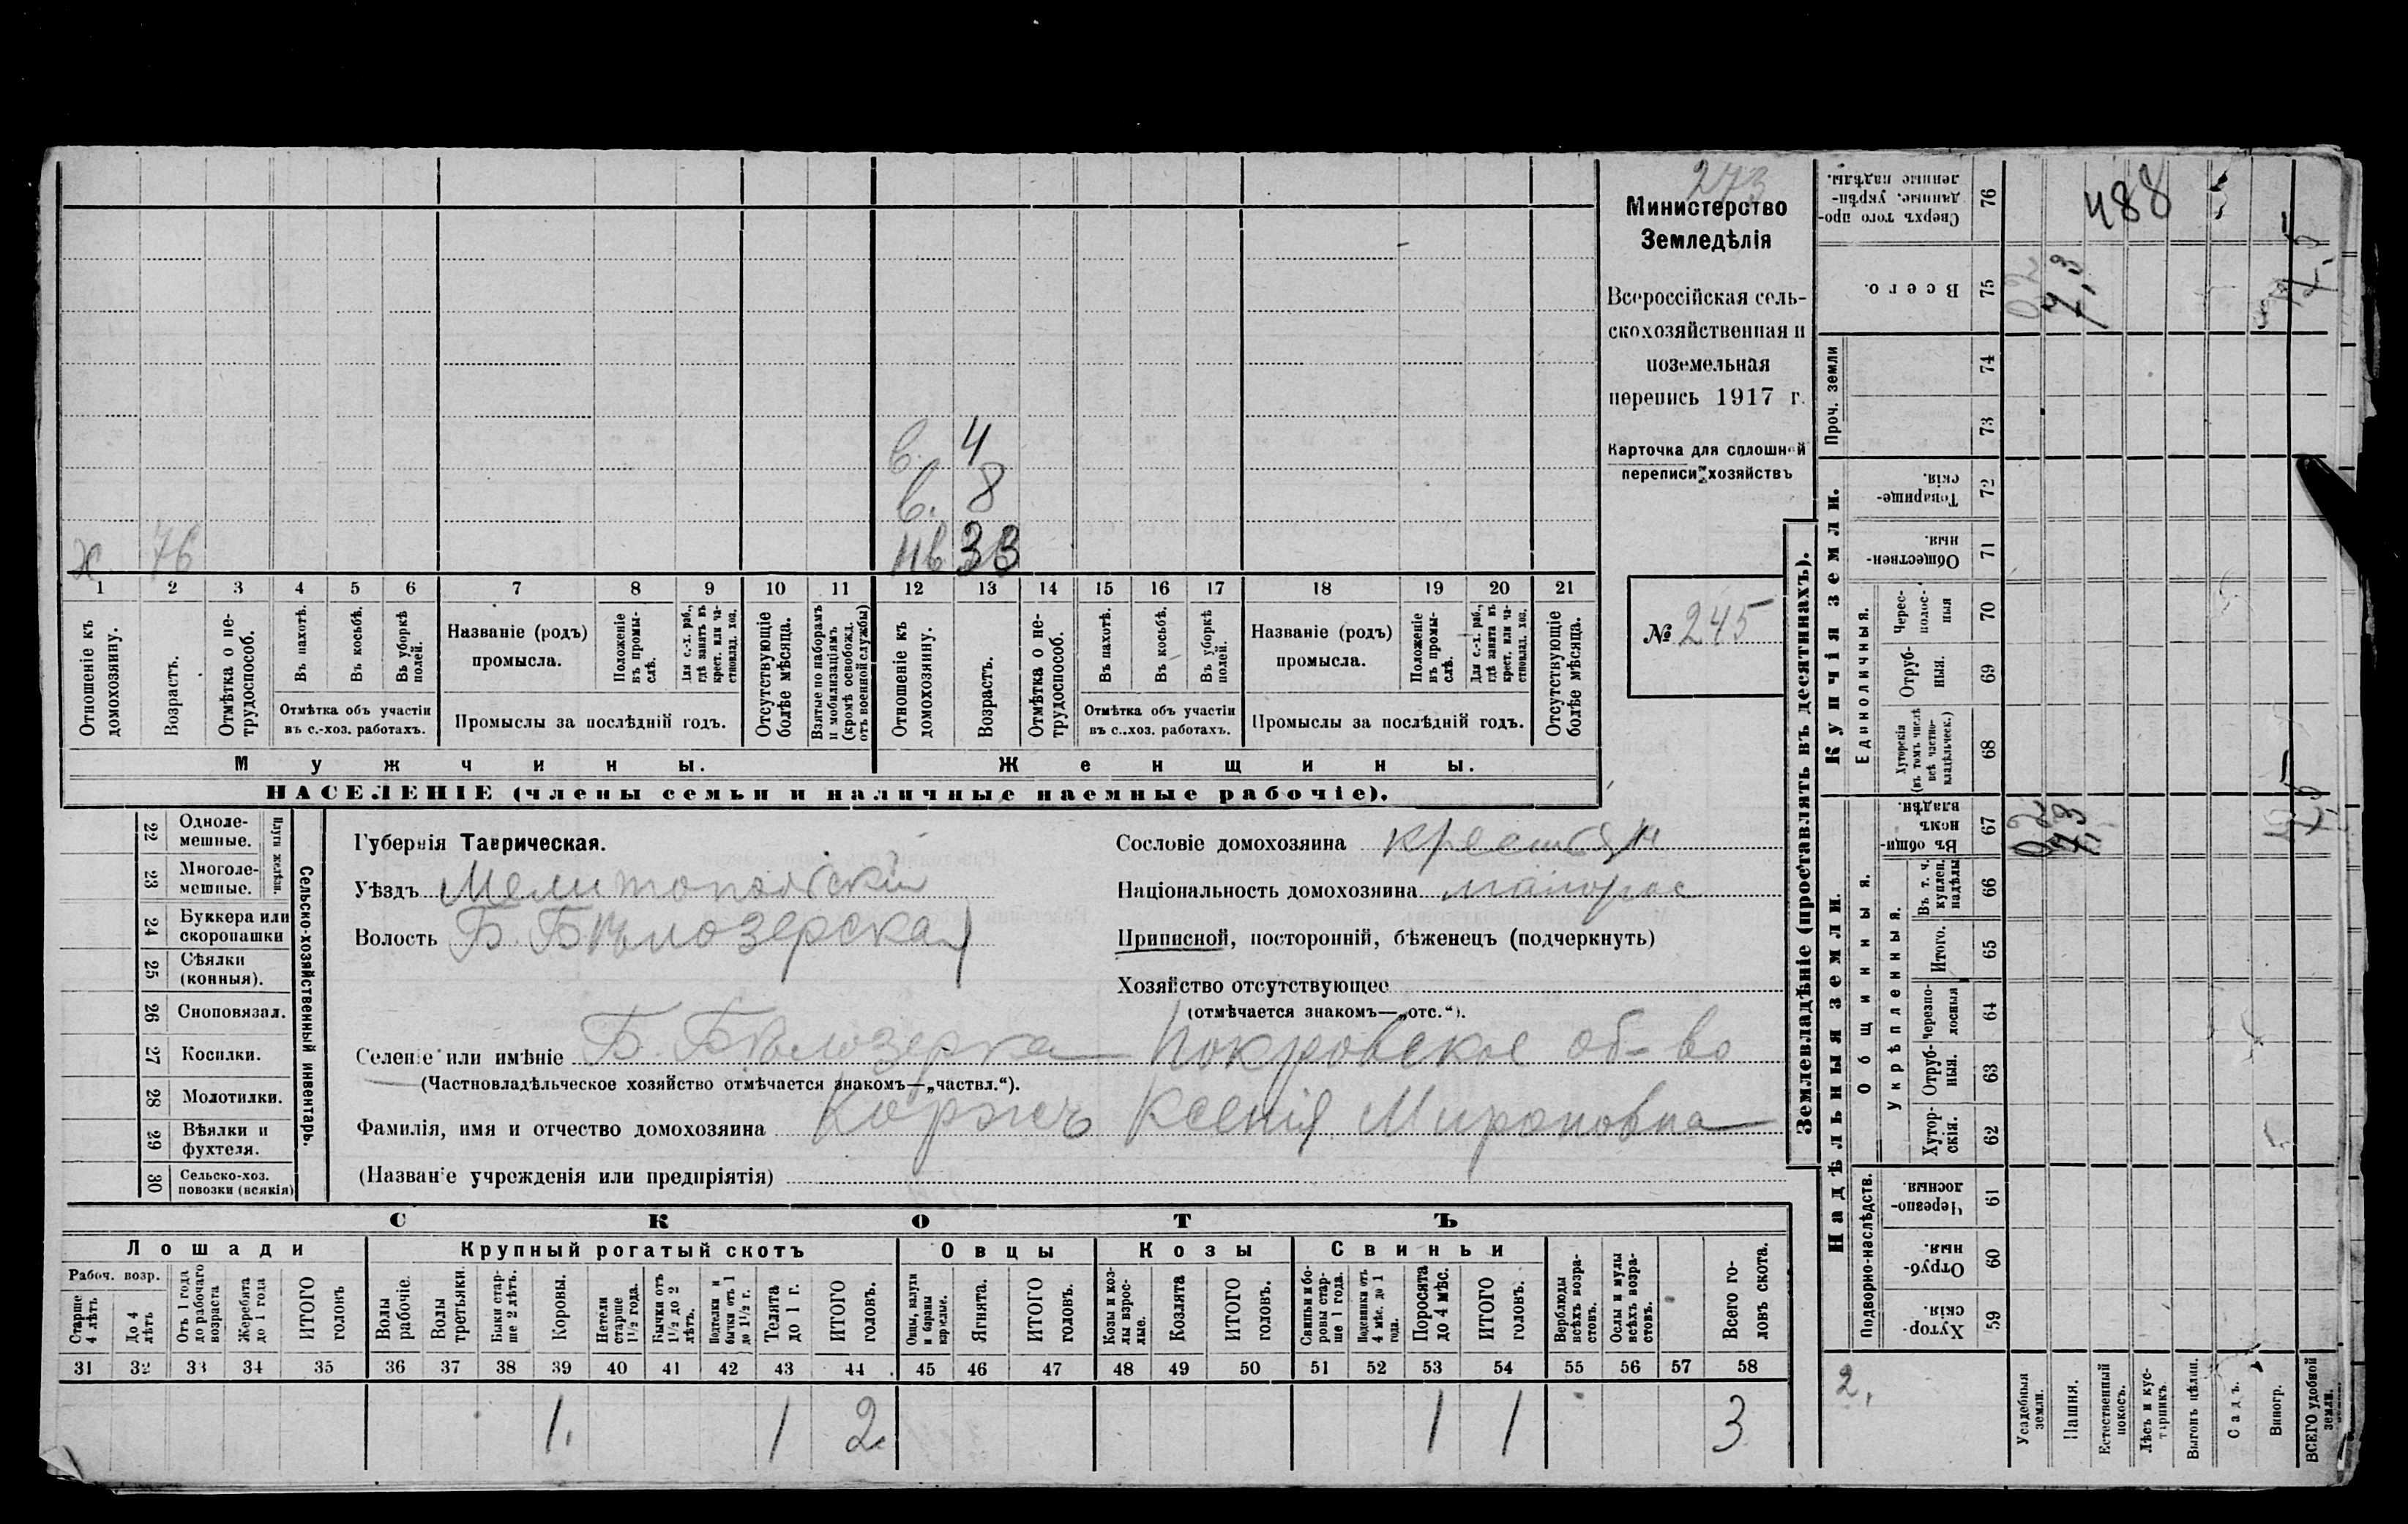 273
Министерство
Земледѣлія
Всероссійская сель-
скохозяйственная и
поземельная
перепись 1917 г.
Карточка для сплошной
переписи хозяйствъ
№ 245
в. 4
в. 8
33
76
1 2 3 4 5 6 7 8 9 10 11 12 13 14 15 16 17 18 19 20 21
Отношеніе къ домохозяину.
Возрастъ.
Отмѣтка о не-трудоспособ.
Въ пахотѣ.
Въ косьбѣ.
Въ уборкѣ полей.
Отмѣтка объ участіи
въ с.-хоз. работахъ.
Названіе (родъ)
промысла.
Положеніе въ промы-слѣ.
Для с.-х. раб., гдѣ занятъ въ крест. или ча-стновлад. хоз.
Промыслы за послѣдній годъ.
Отсутствующіе болѣе мѣсяца.
Взятые по наборамъ и мобилизаціямъ (кромѣ освобожд. отъ военной службы)
Отношеніе къ домохозяину.
Возрастъ.
Отмѣтка о не-трудоспособ.
Въ пахотѣ.
Въ косьбѣ.
Въ уборкѣ полей.
Отмѣтка объ участіи
въ с.-хоз. работахъ.
Названіе (родъ)
промысла.
Положеніе въ промы-слѣ.
Для с.-х. раб., гдѣ занята въ крест. или ча-стновлад. хоз.
Промыслы за послѣдній годъ.
Отсутствующіе болѣе мѣсяца.
Мужчины.
Женщины.
НАСЕЛЕНІЕ (члены семьи и наличные наемные рабочіе).
22 Одноле-мешные.
23 Многоле-мешные.
Плуги желѣзн.
24 Буккера или скоропашки
25 Сѣялки (конныя).
26 Сноповязал.
27 Косилки.
28 Молотилки.
29 Вѣялки и фухтеля.
30 Сельско-хоз. повозки (всякія)
Сельско-хозяйственный инвентарь.
Губернія Таврическая.
Уѣздъ Мелитопольскій
Волость Б. Бѣлозерская
Сословіе домохозяина крестьян
Національность домохозяина малорос
Приписной, посторонній, бѣженецъ (подчеркнуть)
Хозяйство отсутствующее
(отмѣчается знакомъ—„отс.“).
Селеніе или имѣніе Б. Бѣлозерка Покровское об-во
(Частновладѣльческое хозяйство отмѣчается знакомъ—„частвл.“).
Фамилія, имя и отчество домохозяина Коржъ Ксенія Мироновна
(Названіе учрежденія или предпріятія)
СКОТЪ
Лошади
Крупный рогатый скотъ
Овцы
Козы
Свиньи
Рабоч. возр.
Старше 4 лѣтъ
До 4 лѣтъ
Отъ 1 года до рабочаго возраста
Жеребята до 1 года
ИТОГО головъ
Волы рабочіе.
Волы третьяки.
Быки стар-ше 2 лѣтъ.
Коровы.
Нетели старше 1½ года.
Бычки отъ 1½ до 2 лѣтъ.
Подтелки и бычки отъ 1 до 1½ г.
Телята до 1 г.
ИТОГО головъ.
Овцы, валухи и бараны взрослые.
Ягнята.
ИТОГО головъ.
Козы и коз-лы взрос-лые.
Козлята
ИТОГО головъ.
Свиньи и бо-ровы стар-ше 1 года.
Подсвинки отъ 4 мѣс. до 1 года.
Поросята до 4 мѣс.
ИТОГО головъ.
Верблюды всѣхъ возра-стовъ.
Ослы и мулы всѣхъ возра-стовъ.
Всего го-ловъ скота.
31 32 33 34 35 36 37 38 39 40 41 42 43 44 45 46 47 48 49 50 51 52 53 54 55 56 57 58
1. 1 2 1 1 3
Землевладѣніе (проставлять въ десятинахъ).
Надѣльныя земли.
Купчія земли.
Проч. земли
Подворно-наслѣдств.
Общинныя.
Укрѣпленныя.
Единоличныя.
Сверхъ того про-данные, укрѣп-ленные надѣлы. 76
Всего. 75
74
73
Товарище-скія. 72
Обществен-ныя. 71
Черес-полос-ныя 70
Отруб-ныя. 69
Хуторскія (въ томъ числѣ всѣ частно-владѣльческ.) 68
Въ общи-номъ владѣн. 67
Въ т. ч. куплен. надѣлы 66
Итого. 65
Черезпо-лосныя 64
Отруб-ныя. 63
Хутор-скія. 62
Черезпо-лосныя. 61
Отруб-ныя. 60
Хутор-скія. 59
Усадебныя земли.
Пашня.
Естественный покосъ.
Лѣсъ и кус-тарникъ.
Выгонъ цѣлин.
Садъ.
Виногр.
ВСЕГО удобной земли.
488
02
7,3
7,5
02
7,3
7,5
2.